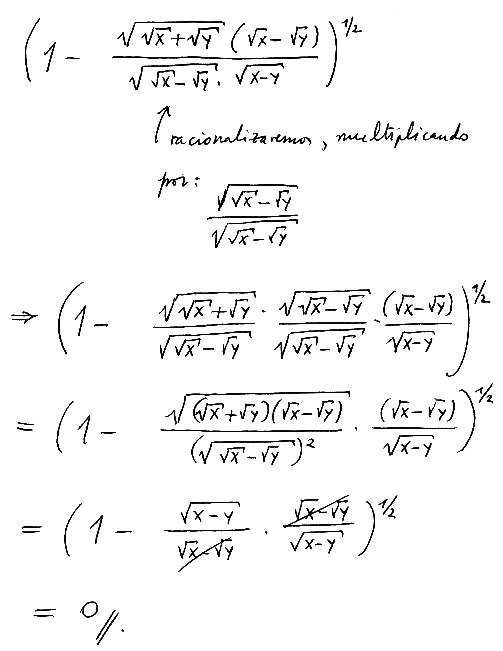 (1 - \frac{\sqrt{\sqrt{x}+\sqrt{y}} (\sqrt{x}-\sqrt{y})}{\sqrt{\sqrt{x}-\sqrt{y}} \cdot \sqrt{x-y}})^{1/2}
↑ racionalizaremos, multiplicando
por: \frac{\sqrt{\sqrt{x}-\sqrt{y}}}{\sqrt{\sqrt{x}-\sqrt{y}}}
⇒ (1 - \frac{\sqrt{\sqrt{x}+\sqrt{y}}}{\sqrt{\sqrt{x}-\sqrt{y}}} \cdot \frac{\sqrt{\sqrt{x}-\sqrt{y}}}{\sqrt{\sqrt{x}-\sqrt{y}}} \cdot \frac{(\sqrt{x}-\sqrt{y})}{\sqrt{x-y}})^{1/2}
= (1 - \frac{\sqrt{(\sqrt{x}+\sqrt{y})(\sqrt{x}-\sqrt{y})}}{(\sqrt{\sqrt{x}-\sqrt{y}})^2} \cdot \frac{(\sqrt{x}-\sqrt{y})}{\sqrt{x-y}})^{1/2}
= (1 - \frac{\sqrt{x-y}}{\sqrt{x}-\sqrt{y}} \cdot \frac{\sqrt{x}-\sqrt{y}}{\sqrt{x-y}})^{1/2}
= 0//.